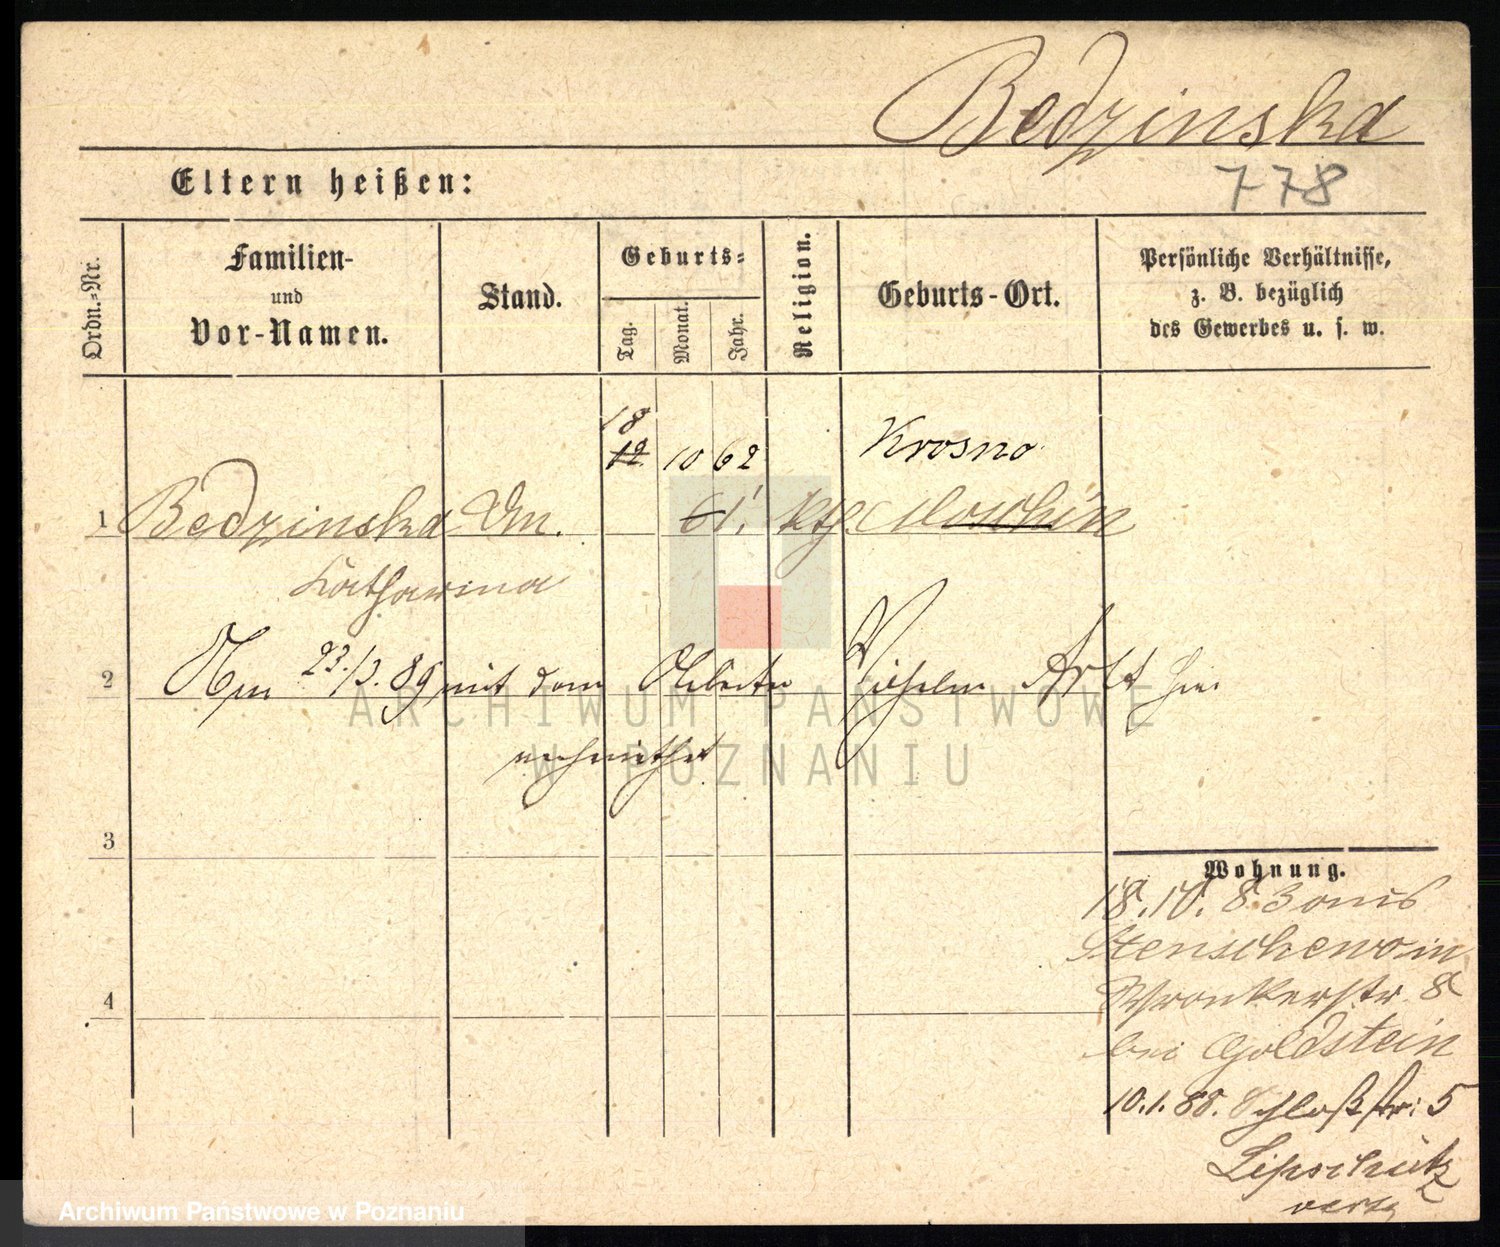 Bedzinska
778
Eltern heißen:
Ordn.-Nr.
Familien-
und
Vor-Namen.
Stand.
Geburts-
Tag.
Monat.
Jahr.
Religion.
Geburts-Ort.
Persönliche Verhältnisse,
z. B. bezüglich
des Gewerbes u. s. w.
18
12 10 62 Krosno
1 Bedzinska 61. kth Moschin
Katharina
2 Am 23/3. 89 mit dem Arbeiter Wilhelm Arlt hier
verheirathet
ARCHIWUM PAŃSTWOWE
W POZNANIU
3
Wohnung.
18.10.83 aus
Stenschewo in
4
Wronkerstr. 8
bei Goldstein
10.1.88. Schloßstr: 5
Lipschütz
Archiwum Państwowe w Poznaniu